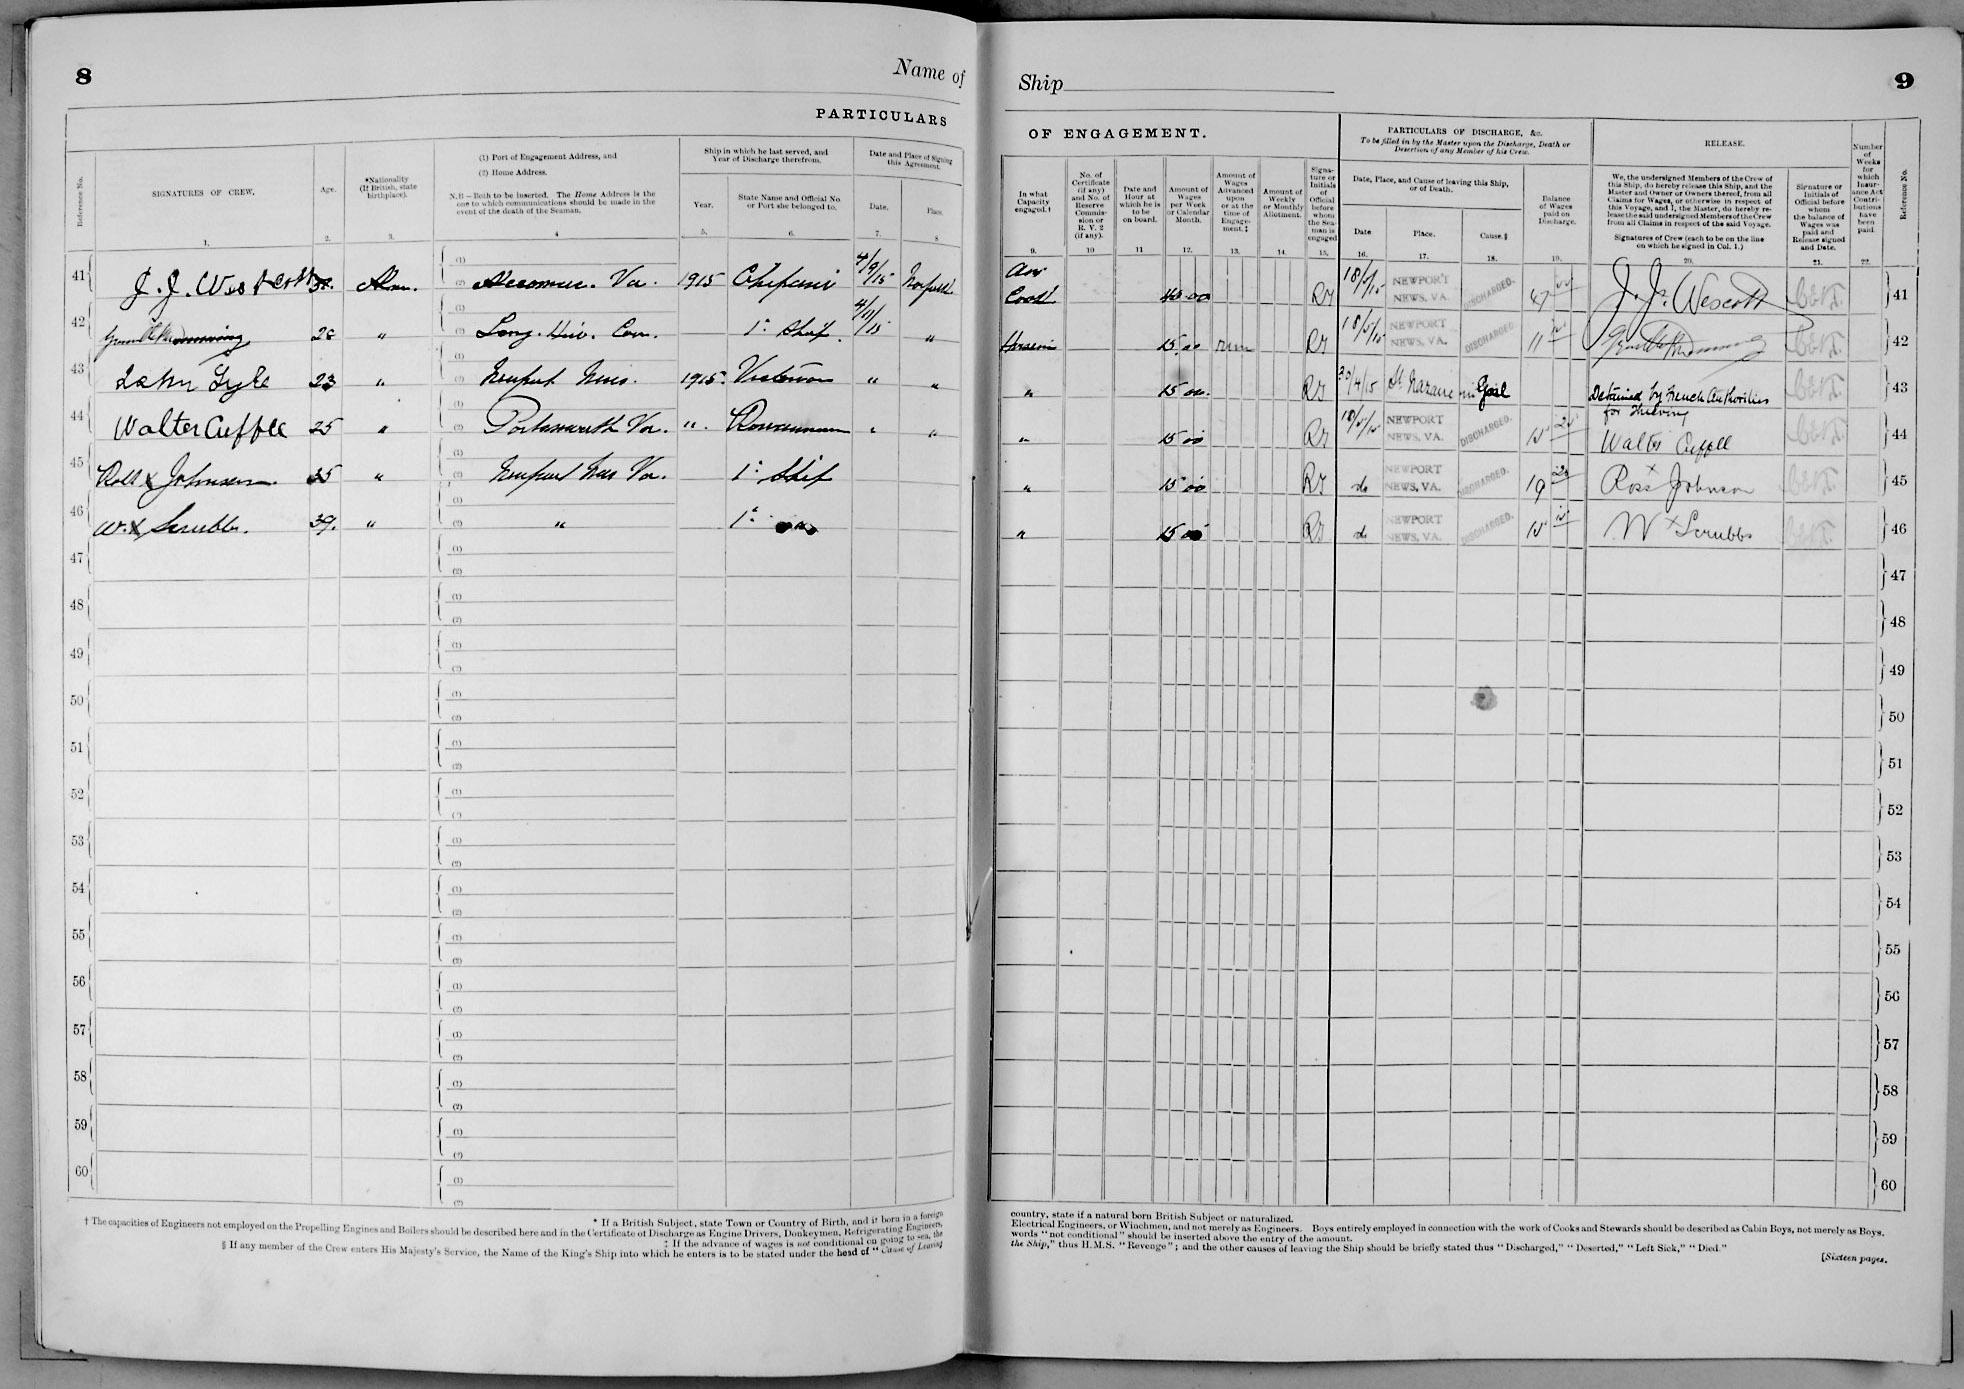 8
Name of
PARTICULARS
Reference No.
SIGNATURES OF CREW.
Age.
*Nationality
(If British, state
birthplace).
(1) Port of Engagement Address, and
(2) Home Address.
N.B — Both to be inserted. The Home Address is the
one to which communications should be made in the
event of the death of the Seaman.
Ship in which he last served, and
Year of Discharge therefrom.
Year.
State Name and Official No.
or Port she belonged to.
Date and Place of Signing
this Agreement.
Date.
Place.
1. 2. 3. 4 5. 6. 7. 8
41 J. J. Westcott Va. 1915 4/9/15 Norfolk
42 28 " 1st Ship "
43 John Lyle 23 " Newport News. 1915. " "
44 Walter Cuffee 25 " Portsmouth Va. " " "
45 X Johnson 35 " Newport News Va. 1st Ship
46 W. X Scrubbs. 39. " " 1st
47
48
49
50
51
52
53
54
55
56
57
58
59
60
* If a British Subject, state Town or Country of Birth, and if born in a foreign
† The capacities of Engineers not employed on the Propelling Engines and Boilers should be described here and in the Certificate of Discharge as Engine Drivers, Donkeymen, Refrigerating Engineers,
‡ If the advance of wages is not conditional on going to sea, the
§ If any member of the Crew enters His Majesty's Service, the Name of the King's Ship into which he enters is to be stated under the head of "Cause of Leaving
Ship
9
OF ENGAGEMENT.
PARTICULARS OF DISCHARGE, &c.
To be filled in by the Master upon the Discharge, Death or
Desertion of any Member of his Crew.
RELEASE.
In what
Capacity
engaged.†
No. of
Certificate
(if any)
and No. of
Reserve
Commis-
sion or
R. V. 2
(if any).
Date and
Hour at
which he is
to be
on board.
Amount of
Wages
per Week
or Calendar
Month.
Amount of
Wages
Advanced
upon
or at the
time of
Engage-
ment.‡
Amount of
Weekly
or Monthly
Allotment.
Signa-
ture or
Initials
of
Official
before
whom
the Sea-
man is
engaged
Date, Place, and Cause of leaving this Ship,
or of Death.
Date
Place.
Cause.§
Balance
of Wages
paid on
Discharge.
We, the undersigned Members of the Crew of
this Ship, do hereby release this Ship, and the
Master and Owner or Owners thereof, from all
Claims for Wages, or otherwise in respect of
this Voyage, and I, the Master, do hereby re-
lease the said undersigned Members of the Crew
from all Claims in respect of the said Voyage.
Signatures of Crew (each to be on the line
on which he signed in Col. 1.)
Signature or
Initials of
Official before
whom
the balance of
Wages was
paid and
Release signed
and Date.
Number
of
Weeks
for
which
Insur-
ance Act
Contri-
butions
have
been
paid.
Reference No.
9. 10 11 12. 13. 14. 15. 16. 17. 18. 19. 20. 21. 22.
Cook 40.00 18/5/15 NEWPORT NEWS, VA. DISCHARGED. 47 J. J. Wescott 41
15.00 18/5/15 NEWPORT NEWS, VA. DISCHARGED. 11 42
" 15.00 /4/15 St. Nazaire in Gaol Detained by French Authorities
for thieving 43
" 15 00 18/5/15 NEWPORT NEWS, VA. DISCHARGED. Walter Cuffee 44
" 15 00 do NEWPORT NEWS, VA. DISCHARGED. 19 Ross X Johnson 45
" 15 00 do NEWPORT NEWS, VA. DISCHARGED. W X Scrubbs 46
47
48
49
50
51
52
53
54
55
56
57
58
59
60
country, state if a natural born British Subject or naturalized.
Electrical Engineers, or Winchmen, and not merely as Engineers. Boys entirely employed in connection with the work of Cooks and Stewards should be described as Cabin Boys, not merely as Boys.
words "not conditional" should be inserted above the entry of the amount.
the Ship," thus H.M.S. "Revenge"; and the other causes of leaving the Ship should be briefly stated thus "Discharged," "Deserted," "Left Sick," "Died."
[Sixteen pages.